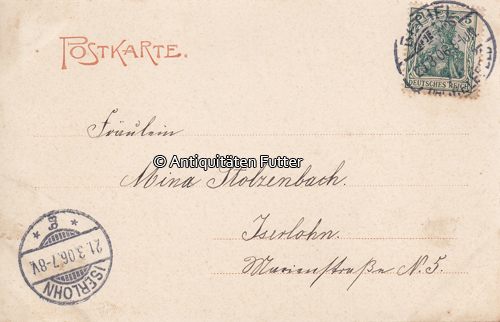 POSTKARTE.
5
DEUTSCHES REICH
Fräulein
© Antiquitäten Futter
Mina Stolzenbach.
Iserlohn.
Marienstraße N. 5.
21.3.06.7-8V.
ISERLOHN